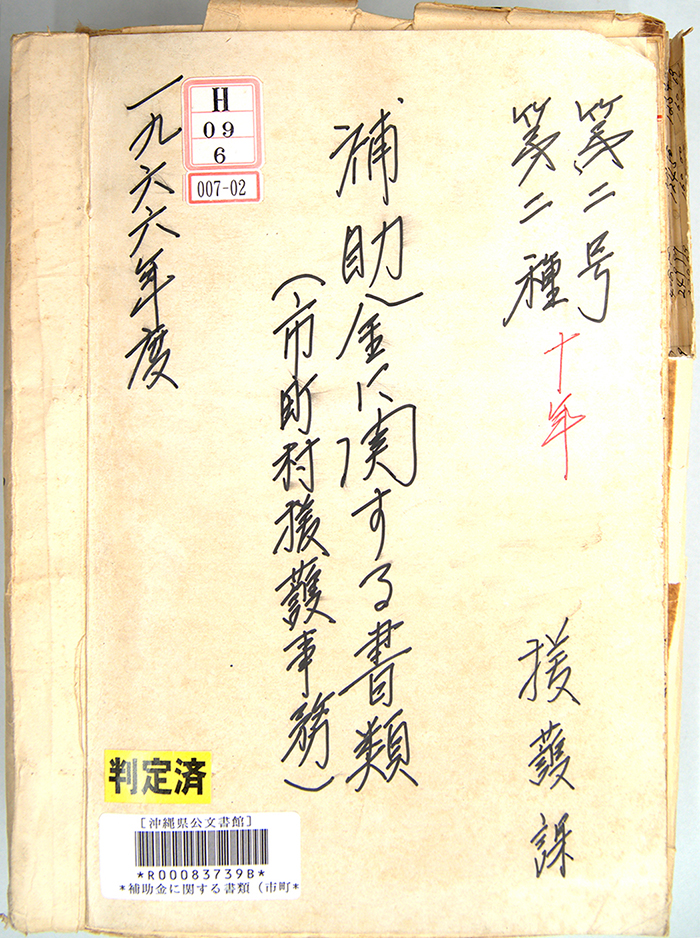 第二号
第二種 十年
援護課
補助金に関する書類
(市町村援護事務)
一九六六年度
H
09
6
007-02
判定済
[沖縄県公文書館]
*R00083739B*
*補助金に関する書類(市町*